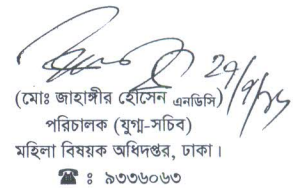 (মোঃ জাহাঙ্গীর হোসেন এনডিসি)
পরিচালক (যুগ্ম-সচিব)
মহিলা বিষয়ক অধিদপ্তর, ঢাকা।
☎ : ৯৩৩৬০৬৩